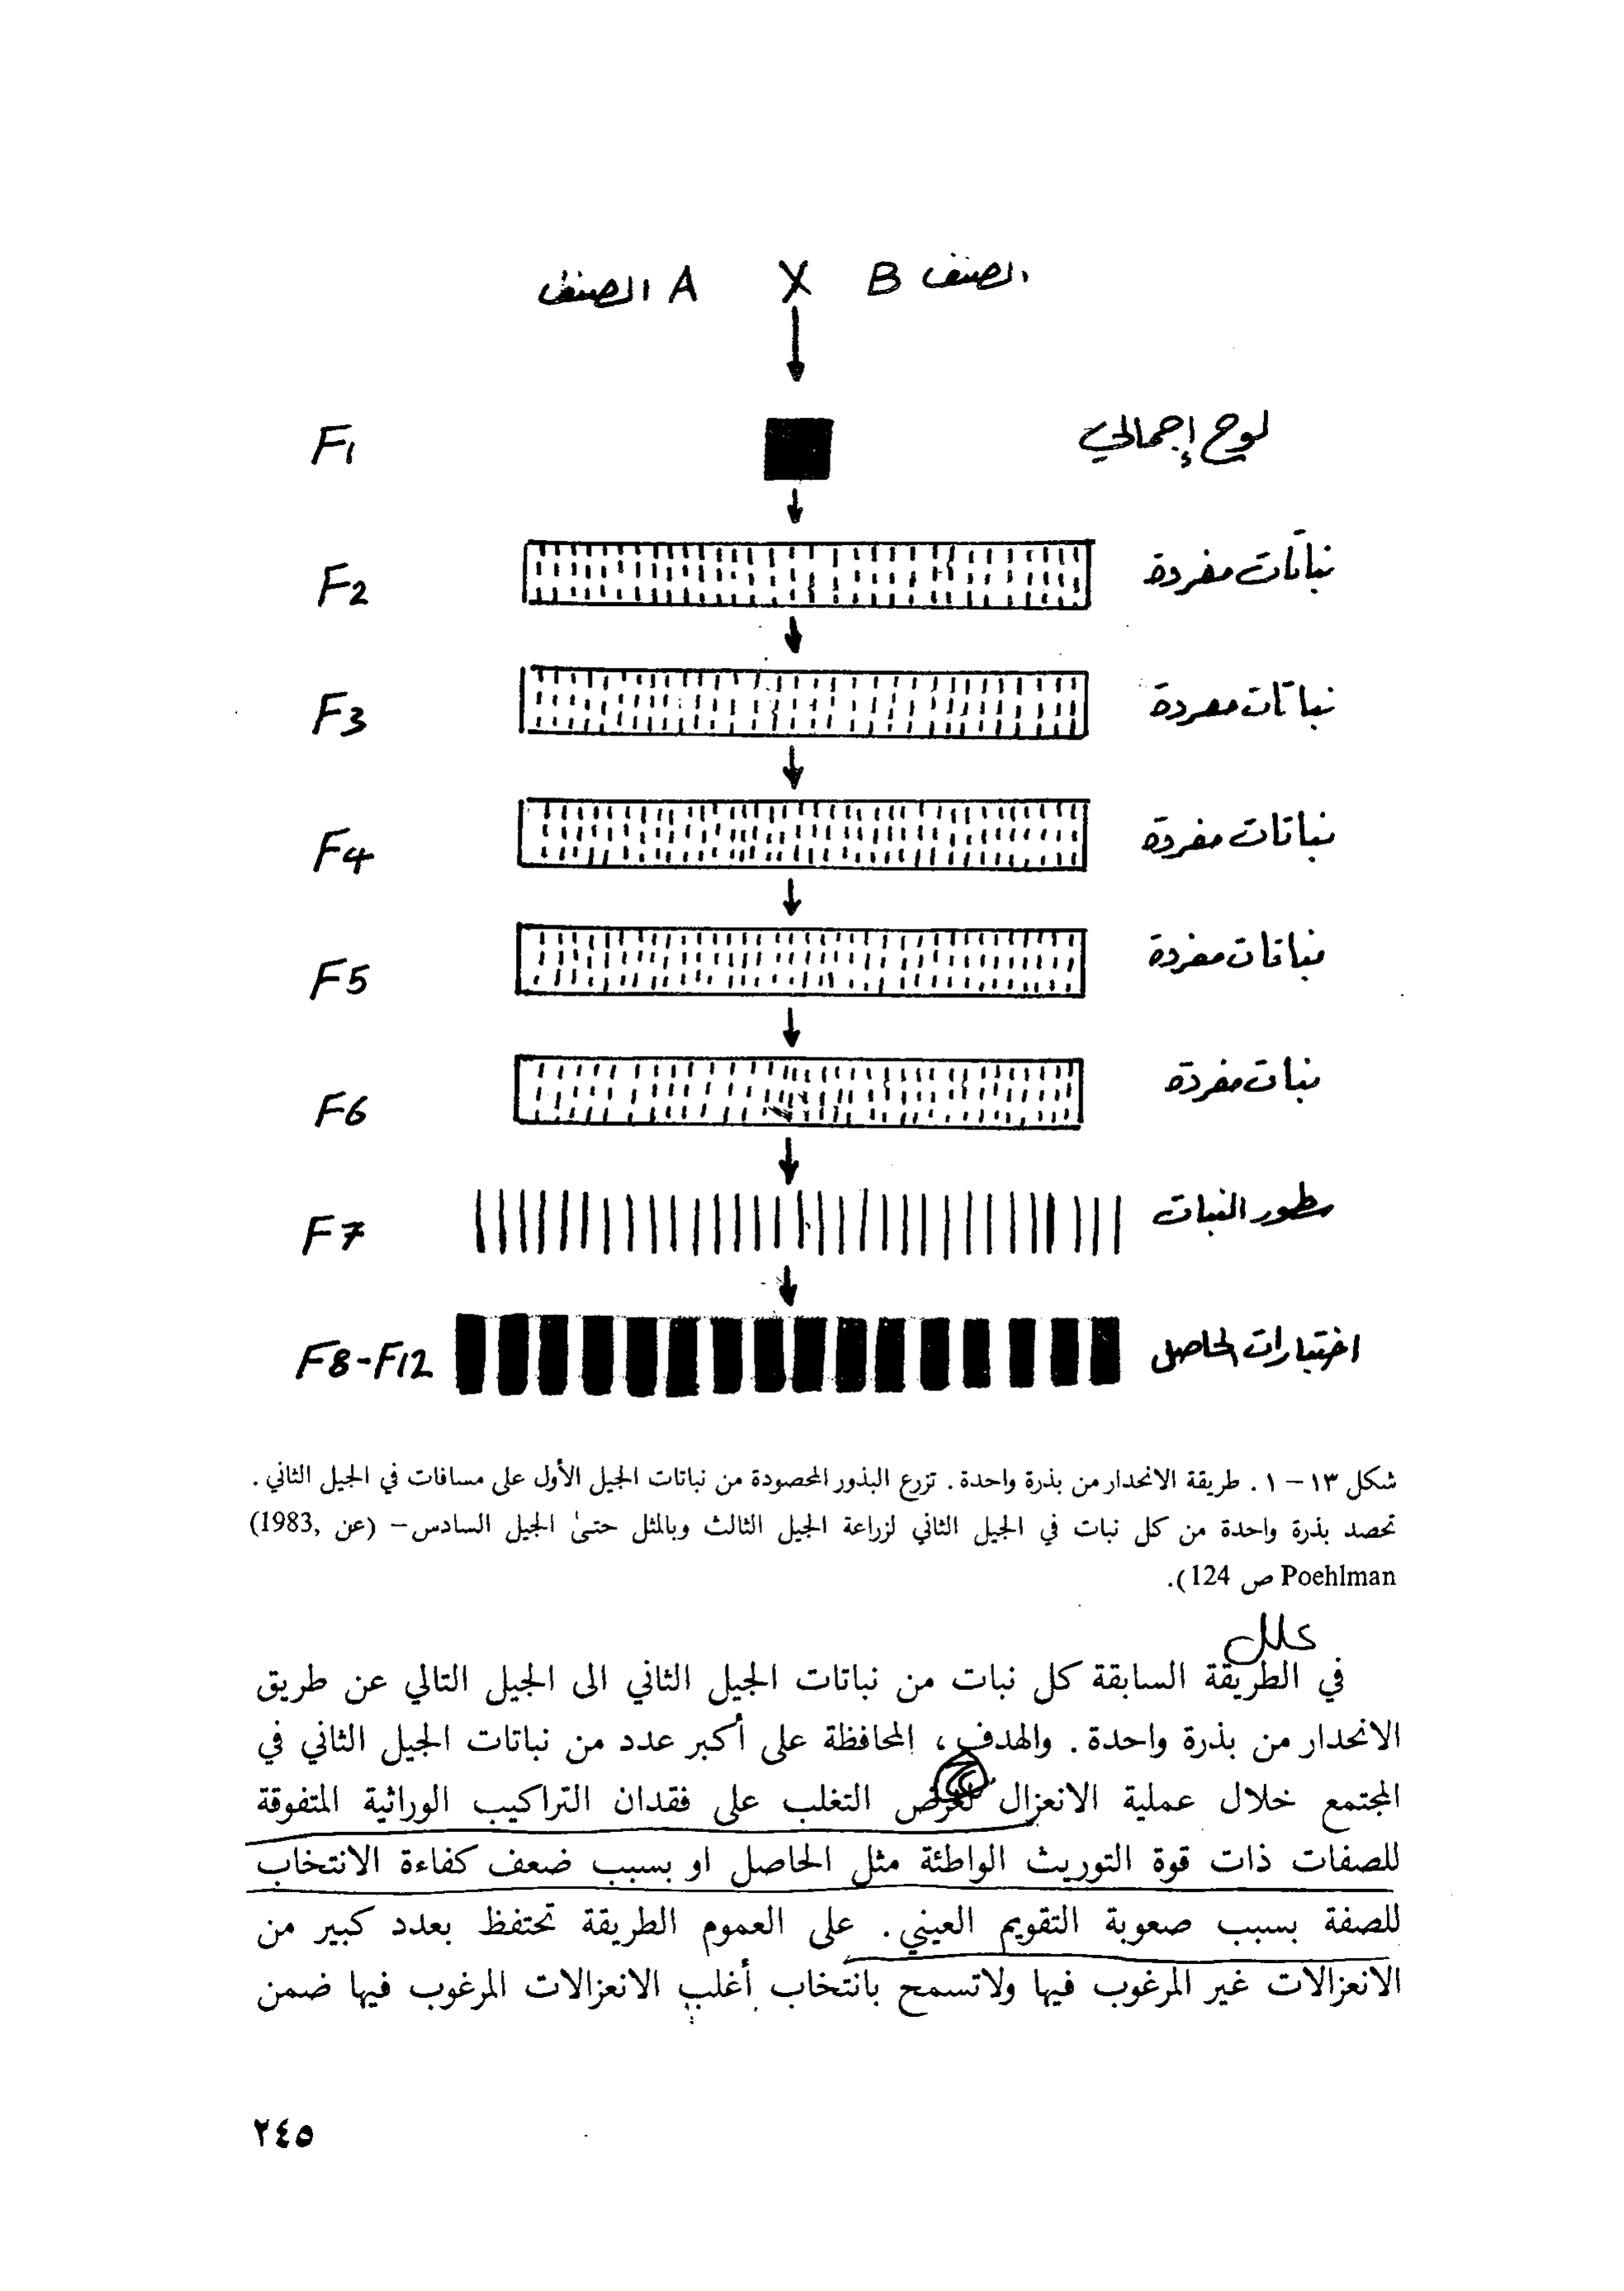 الصنف A X B الصنف
F1 لوح إجمالي
F2 نباتات مفردة
F3 نباتات مفردة
F4 نباتات مفردة
F5 نباتات مفردة
F6 نبات مفردة
F7 سطور النبات
F8-F12 اختبارات الحاصل
شكل ١٣ – ١ . طريقة الانحدار من بذرة واحدة . تزرع البذور المحصودة من نباتات الجيل الأول على مسافات في الجيل الثاني .
تحصد بذرة واحدة من كل نبات في الجيل الثاني لزراعة الجيل الثالث وبالمثل حتىٰ الجيل السادس – (عن 1983,)
Poehlman ص 124).
علل
في الطريقة السابقة كل نبات من نباتات الجيل الثاني الى الجيل التالي عن طريق
الانحدار من بذرة واحدة . والهدف ، المحافظة على أكبر عدد من نباتات الجيل الثاني في
المجتمع خلال عملية الانعزال لغرض التغلب على فقدان التراكيب الوراثية المتفوقة
للصفات ذات قوة التوريث الواطئة مثل الحاصل او بسبب ضعف كفاءة الانتخاب
للصفة بسبب صعوبة التقويم العيني . على العموم الطريقة تحتفظ بعدد كبير من
الانعزالات غير المرغوب فيها ولاتسمح بانتخاب أغلب الانعزالات المرغوب فيها ضمن
٢٤٥